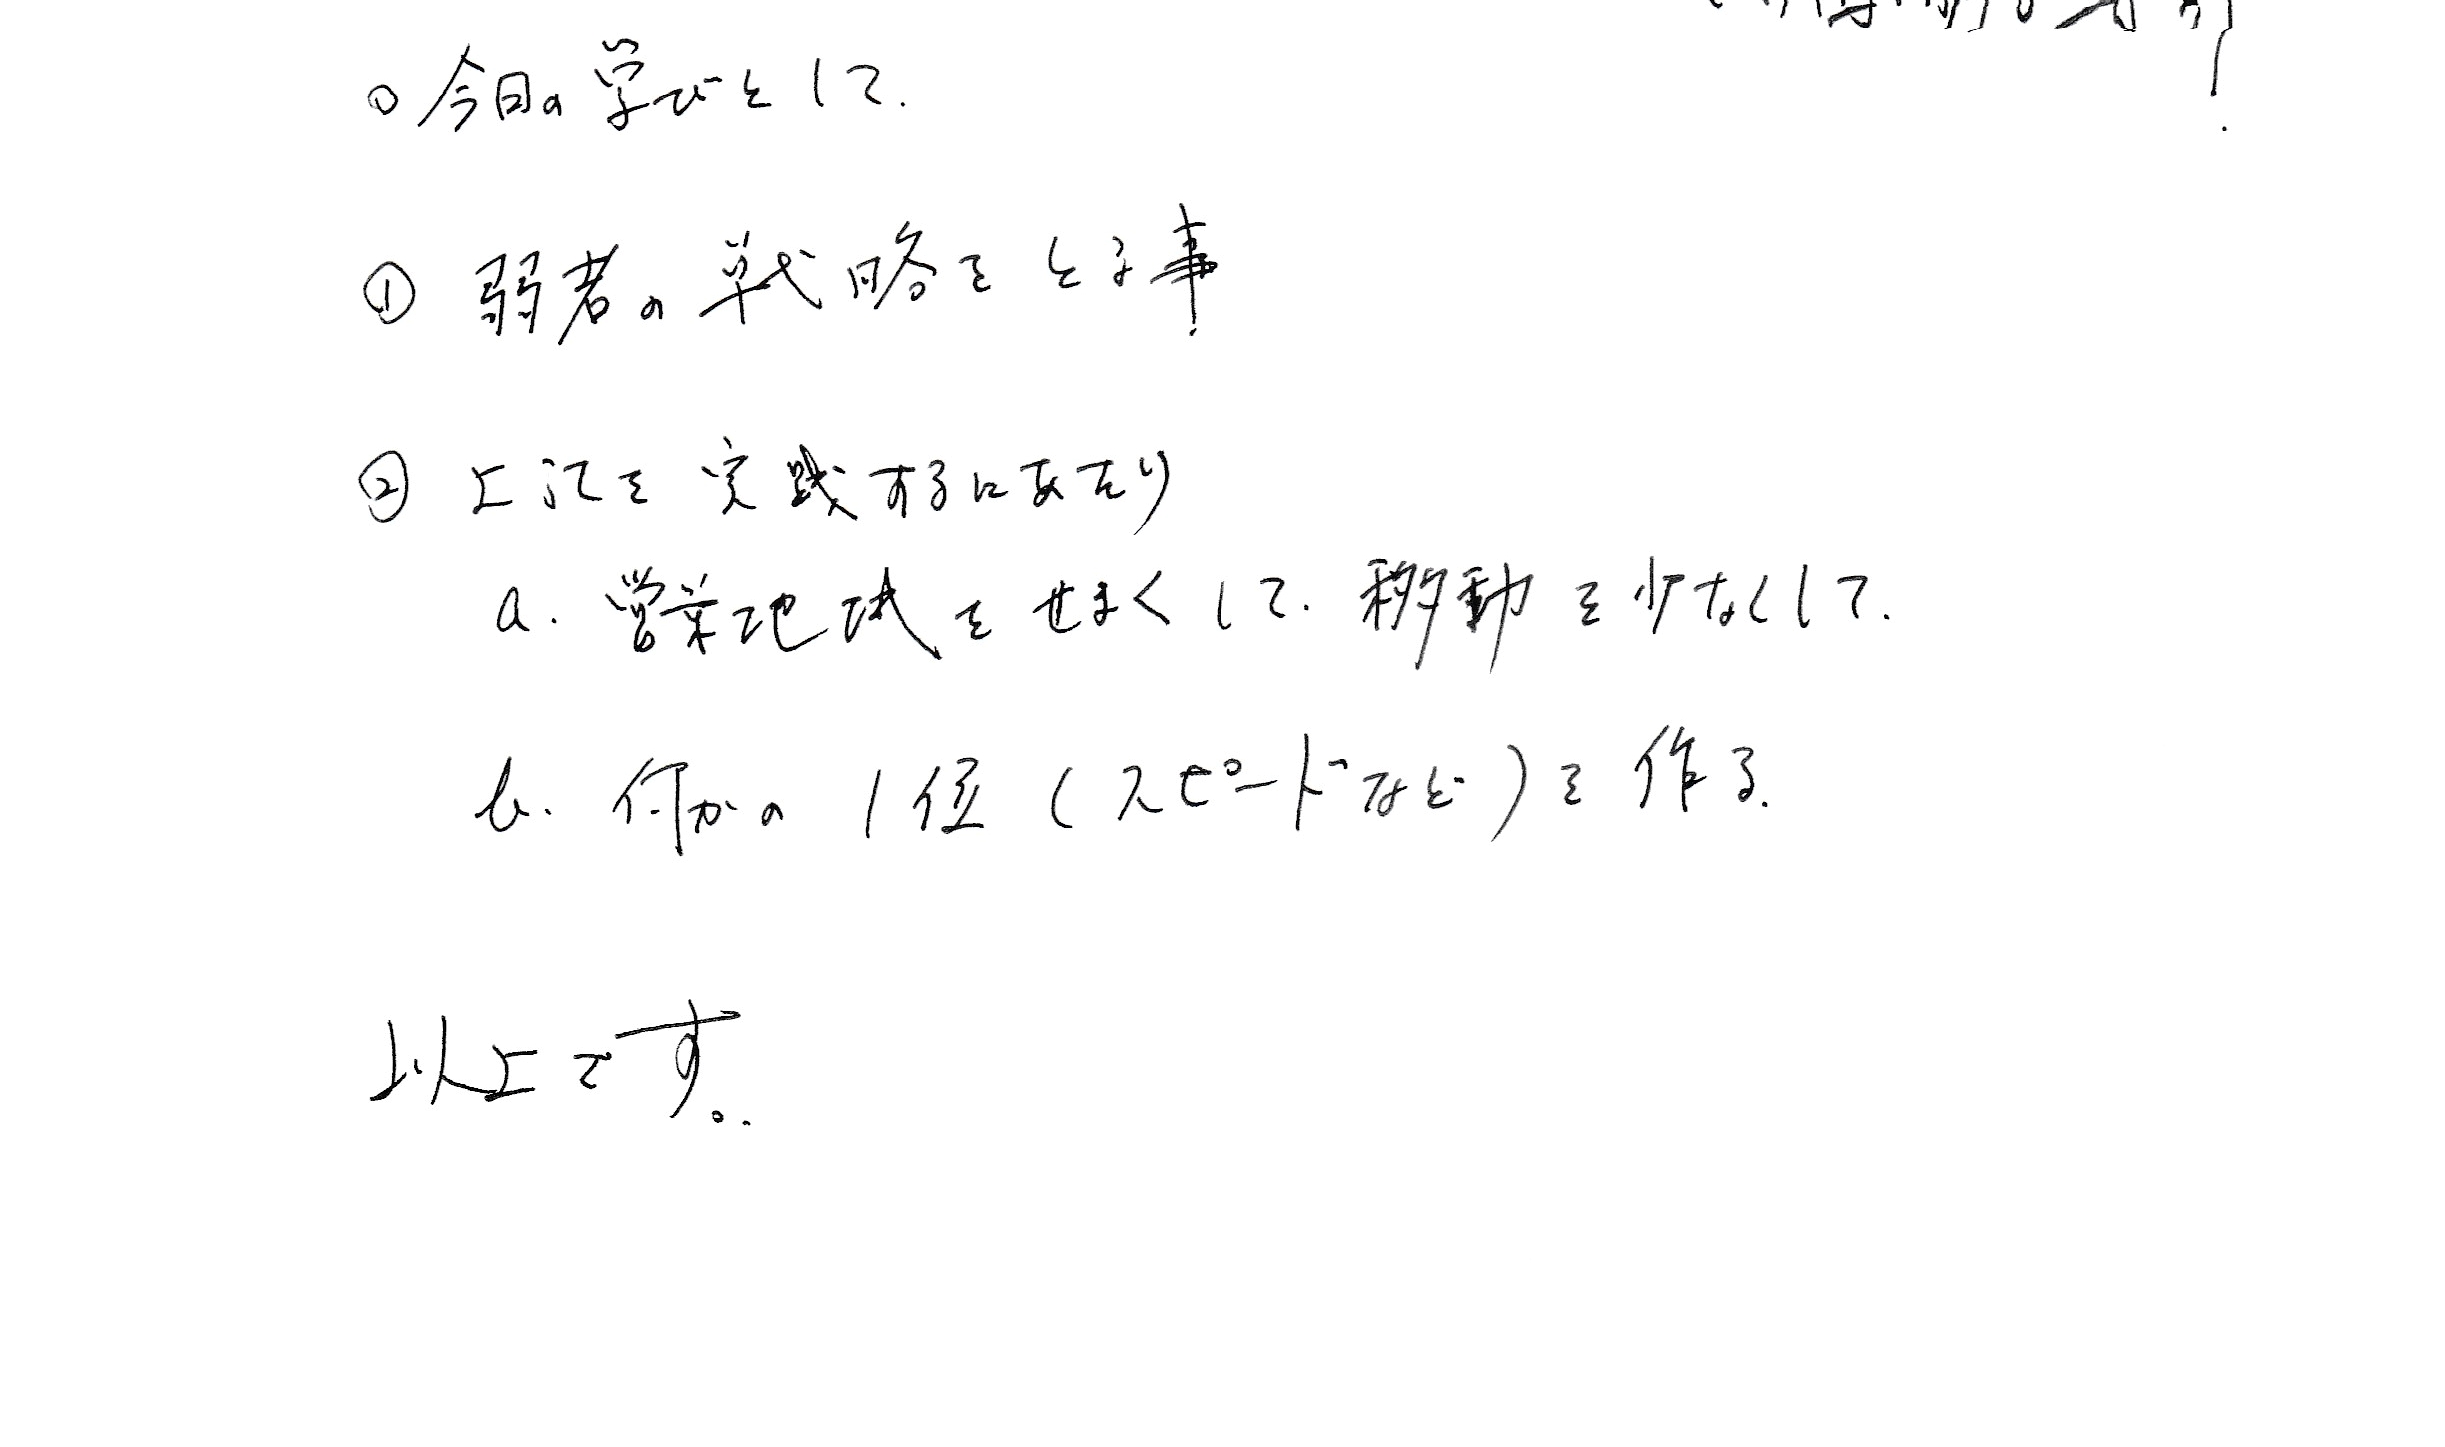 ○今日の学びとして.
① 弱者の戦略をとる事
② 上記を実践するにあたり
a. 営業地域をせまくして. 移動を少なくして.
b. 何かの1位(スピードなど)を作る.
以上です。.